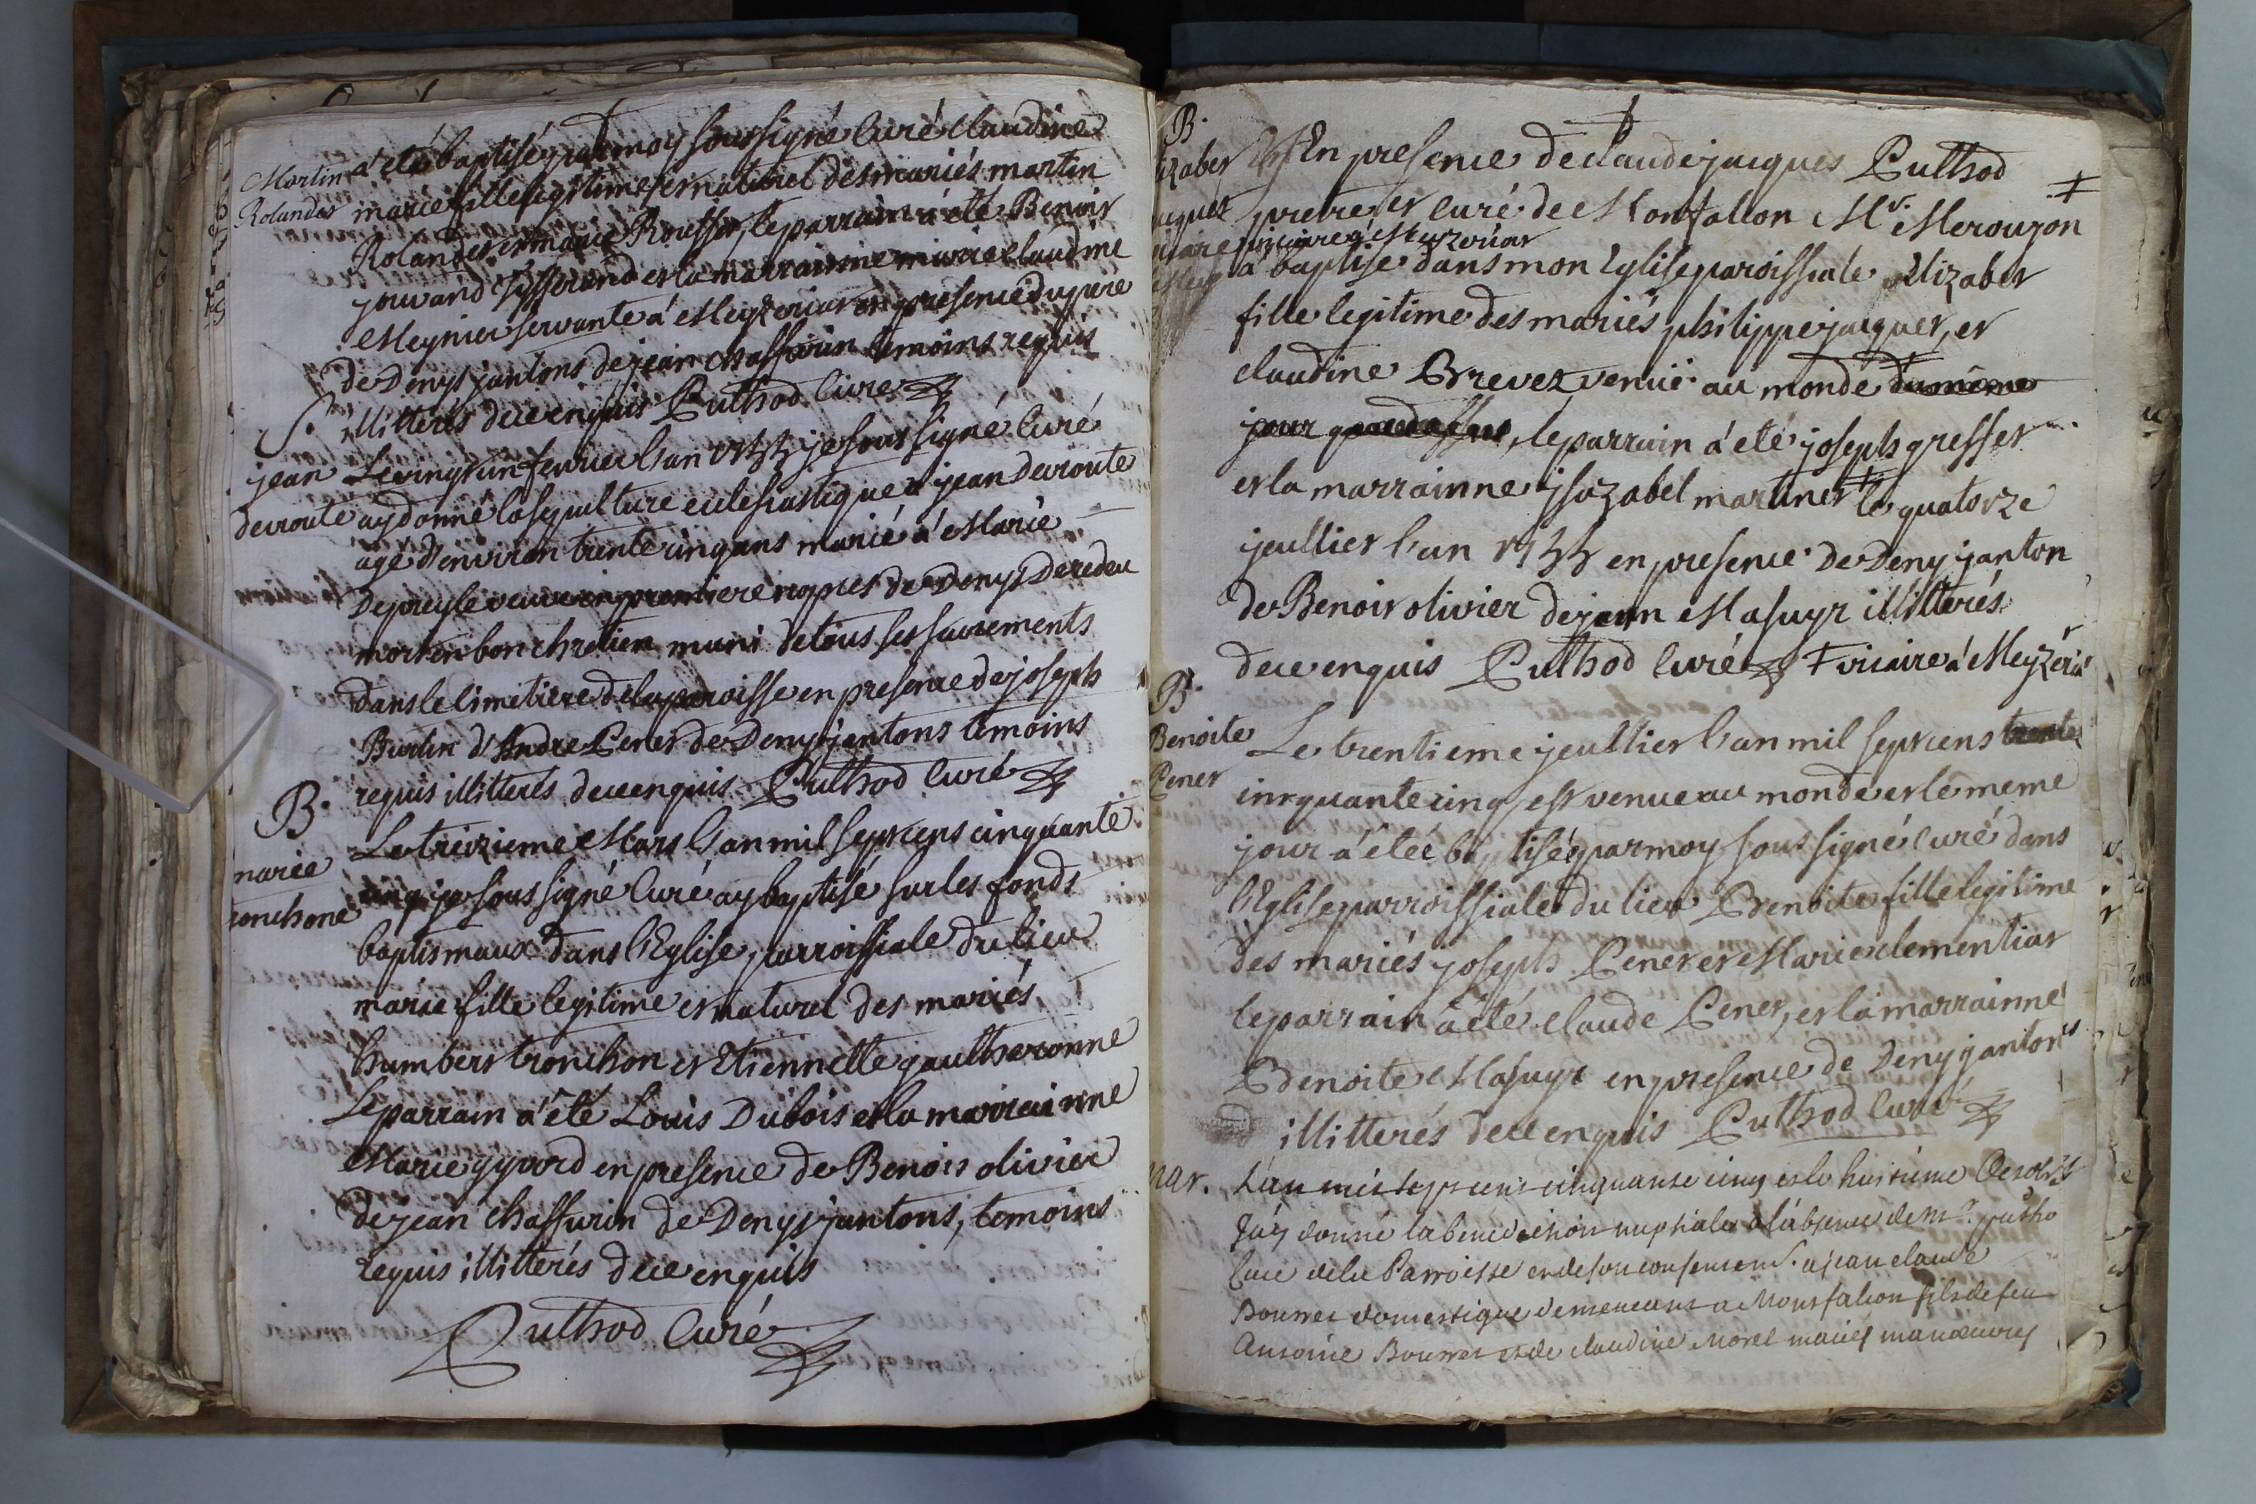 Martin
Rolandes
a été baptisé par moy soussigné Curé Claudine
marie fille legitime et naturel des mariés martin
Rolandes et marie Rousset, le parrain a été Benoit
jouvand et la marrainne marie claudine
Meynier servante a Meyzeriat en presence du pere
de Denys jantons de jean Chaffurin temoins requis
illitterés de ce enquis Puthod Curé
S.
jean
devroute
Le vingt un fevrier l'an 1755 je sous signé Curé
ay donné la sepulture eclesiastique a jean devroute
agé d'environ trente cinq ans marié a Marie
veuve en premiere nopces de Denys
mort en bon chretien muni de tous ses sacrements
dans le Cimetiere de la paroisse en presence de joseph
Burtin d'Andre Cener de Denys jantons temoins
requis illitterés de ce enquis Puthod Curé
B.
marie
tronchone
Le treizieme Mars l'an mil sept cens cinquante
cinq je sous signé Curé ay baptisé sur les fonds
baptismaux dans l'Eglise parroissiale du lieu
marie fille legitime et naturel des mariés
humbert tronchon et Etiennette gautheronne
Le parrain a été Louis Dubois et la marrainne
Marie gyvard en presence de Benoit olivier
de jean Chaffurin de Denys jantons, temoins
requis illitterés de ce enquis
Puthod Curé
B.
En presence de claude jacques Puthod
pretre et curé de Monfallon Mr. Merouzon ‡
vicaire a Meyzeriat
a baptisé dans mon Eglise paroissiale Elizabet
fille legitime des mariés philippe jacquet, et
claudine Brevet venuë au monde du meme
jour, le parrain a été joseph gresset
et la marrainne ysazabel martinet le quatorze
jeullier l'an 1755 en presence de Deny janton
de Benoit olivier de jean Masuyr illitterés
de ce enquis Puthod Curé ‡ vicaire a Meyzeria
B.
Benoite
Cener
Le trentieme jeullier l'an mil sept cens trente
cinquante cinq est venue au monde et le meme
jour a étée baptisée par moy sous signé curé dans
l'Eglise parroissiale du lieu Benoite fille legitime
des mariés joseph Cener et Marie clementiat
le parrain a été claude Cener, et la marrainne
Benoite Masuyr en presence de Deny jantons
illitterés de ce enquis Puthod Curé
mar.
L'an mil sept cens cinquante cinq et le huitieme
J'ay donné la benediction nuptiale a l'absence de mr. putho
Curé de la Parroisse et de son consentement a jean claude
Bourret domestique demeurant a Monsfalcon fils de feu
Antoine Bourret et de claudine Morel mariés manoeuvres